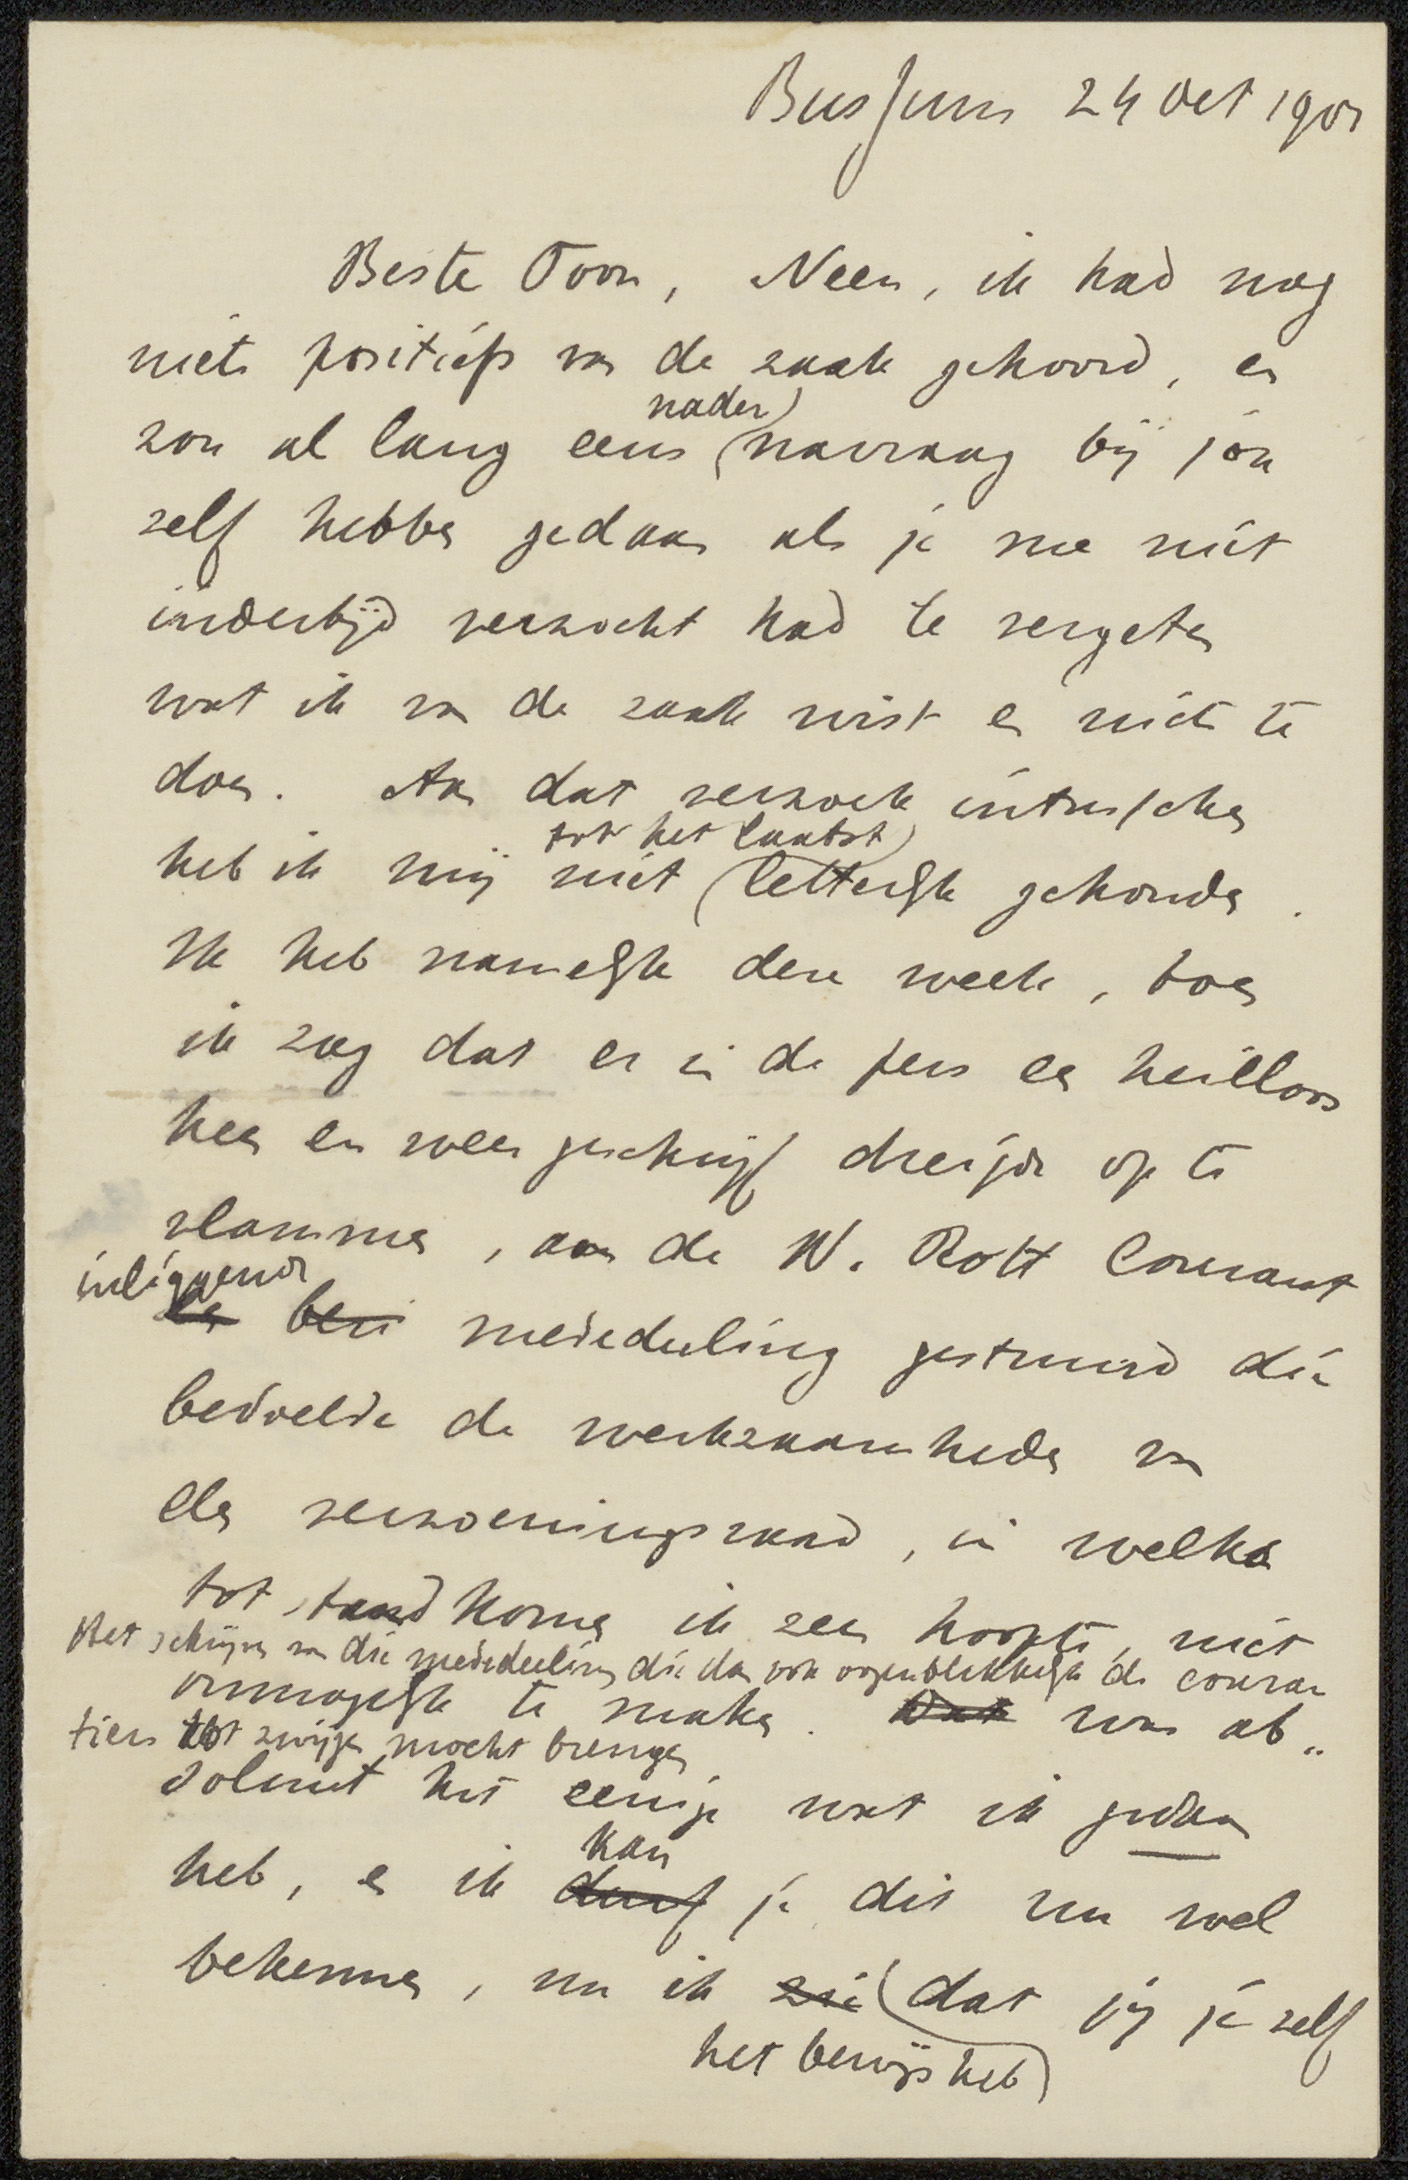 Bussum 24 Oct 1901
Beste Toon, Neen, ik had nog
niets positiefs van de zaak gehoord, en
nader
zou al lang eens navraag bij jou
zelf hebben gedaan als je me niet
indertijd verzocht had te vergeten
wat ik van de zaak wist en niets te
doen. Aan dat verzoek intusschen
tot het laatst
heb ik mij niet letterlijk gehouden.
Ik heb namelijk deze week, toen
ik zag dat er in de pers een heilloos
heen en weer geschrijf dreigde op te
vlammen, aan de N. Rott Courant
inliggende
een mededeeling gestuurd die
bedoelde de werkzaamheden van
den verzoeningsraad, in welks
tot stand komen ik zeer hoopte, niet
Het schrijven van die mededeeling die dan ook oogenblikkelijk de couran
onmogelijk te maken. Dat was ab„
tiers tot zwijgen mocht brengen
soluut het eenige wat ik gedaan
kan
heb, en ik durf je dit nu wel
bekennen, nu ik zie dat jij je zelf
het bewijs heb